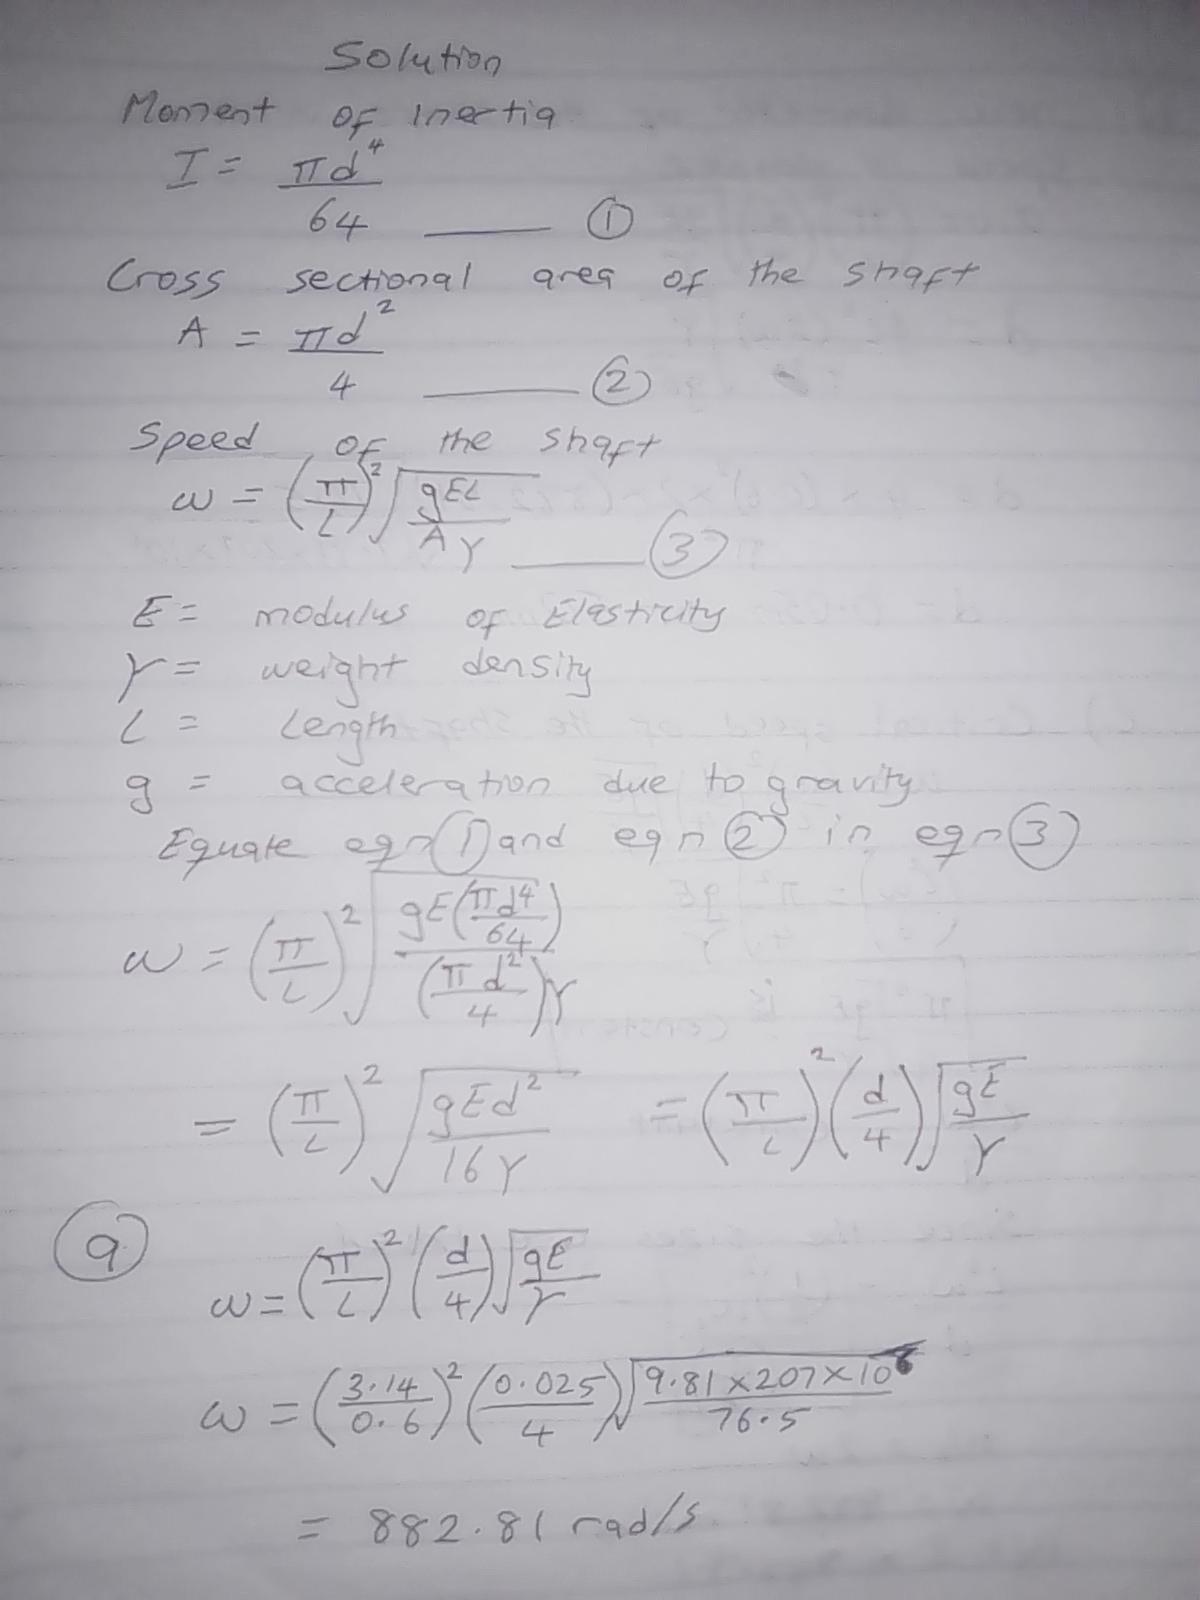 Solution
Moment of Inertia
I = πd⁴/64 ——— ①
Cross sectional area of the shaft
A = πd²/4 ——— ②
Speed of the shaft
ω = (π/L)² √(gEL/Aγ) ——— ③
E = modulus of Elasticity
γ = weight density
L = Length
g = acceleration due to gravity
Equate eqn ① and eqn ② in eqn ③
ω = (π/L)² √(gE(πd⁴/64)/(πd²/4)γ)
= (π/L)² √(gEd²/16γ) = (π/L)² (d/4) √(gE/γ)
ⓐ ω = (π/L)² (d/4) √(gE/γ)
ω = (3.14/0.6)² (0.025/4) √(9.81 × 207 × 10⁶/76.5)
= 882.81 rad/s